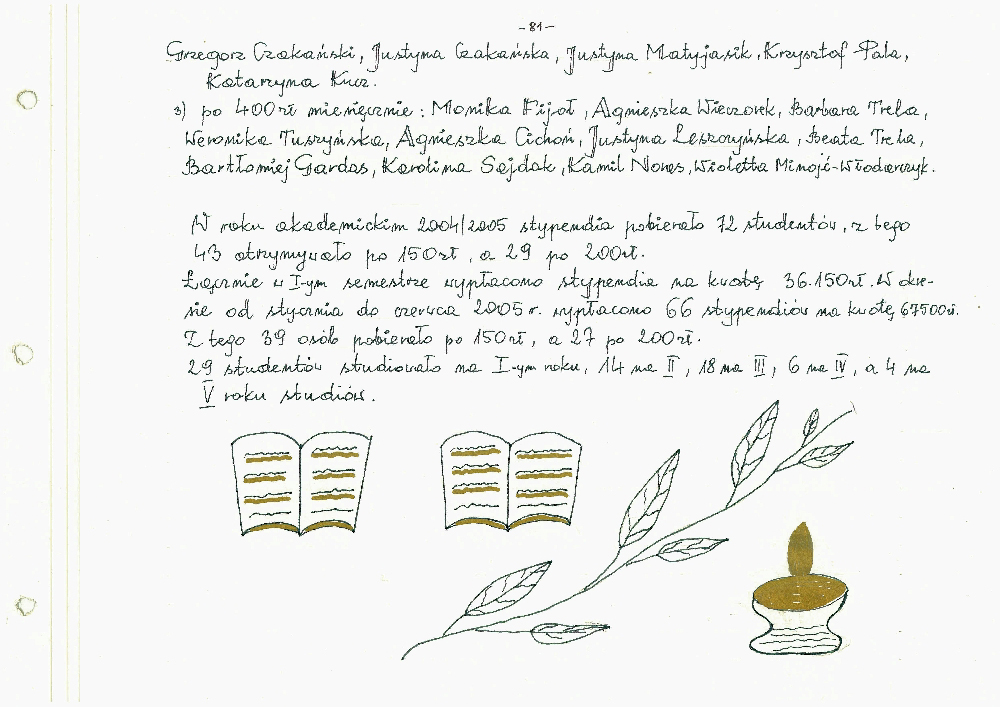 - 81 -
Grzegorz Czakański, Justyna Czakańska, Justyna Matyjasik, Krzysztof Pala,
Katarzyna Kucz.
3) po 400zł miesięcznie: Monika Fijoł, Agnieszka Wieczorek, Barbara Trela,
Weronika Tuszyńska, Agnieszka Cichoń, Justyna Leszczyńska, Beata Trela,
Bartłomiej Gardas, Karolina Sejdak, Kamil Nowos, Wioletta Minojć-Włodarczyk.
W roku akademickim 2004/2005 stypendia pobierało 72 studentów, z tego
43 otrzymywało po 150zł, a 29 po 200zł.
Łącznie w I-ym semestrze wypłacono stypendia na kwotę 36.150zł. W okre-
sie od stycznia do czerwca 2005 r. wypłacono 66 stypendiów na kwotę 67500zł.
Z tego 39 osób pobierało po 150zł, a 27 po 200zł.
29 studentów studiowało na I-ym roku, 14 na II, 18 na III, 6 na IV, a 4 na
V roku studiów.